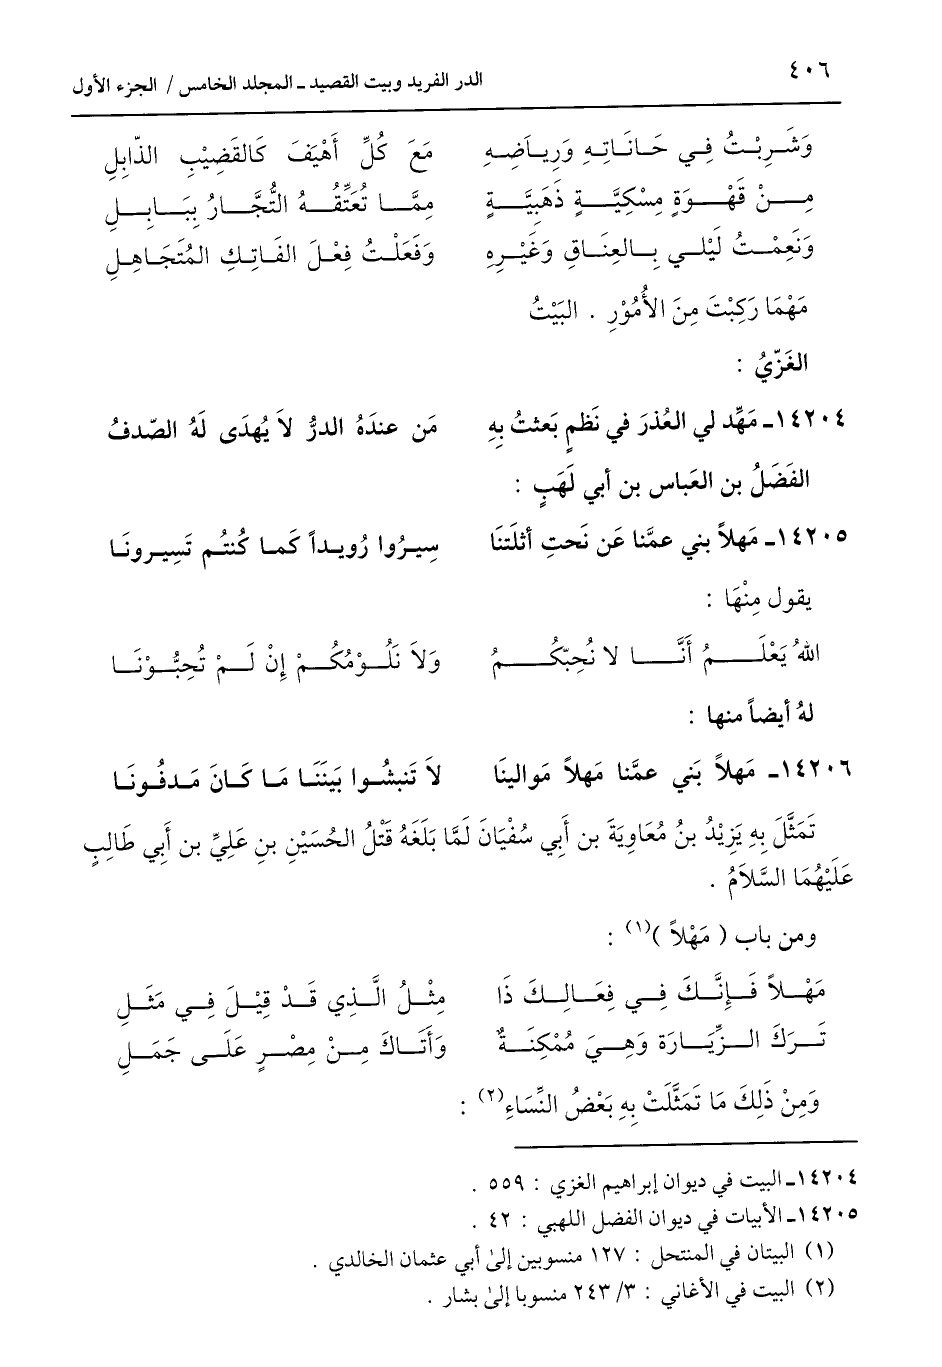 ٤٠٦
الدر الفريد وبيت القصيد ـ المجلد الخامس / الجزء الأول
وَشَرِبْتُ فِي حَانَاتِهِ وَرِيَاضِهِ مَعَ كُلِّ أَهْيَفَ كَالقَضِيْبِ الذَّابِلِ
مِنْ قَهْوَةٍ مِسْكِيَّةٍ ذَهَبِيَّةٍ مِمَّا تُعَتِّقُهُ التُّجَّارُ بِبَابِلِ
وَنَعِمْتُ لَيْلِي بِالعِنَاقِ وَغَيْرِهِ وَفَعَلْتُ فِعْلَ الفَاتِكِ المُتَجَاهِلِ
مَهْمَا رَكِبْتَ مِنَ الأُمُوْرِ . البَيْتُ
الغَزِّيُ :
١٤٢٠٤ـ مَهِّد لي العُذرَ في نَظمٍ بَعثتُ بِهِ مَن عندَهُ الدرُّ لاَ يُهدَى لَهُ الصّدفُ
الفَضَلُ بن العَباس بن أبي لَهَبٍ :
١٤٢٠٥ـ مَهلاً بني عمَّنا عَن نَحتِ أثلَتنَا سِيرُوا رُويداً كَما كُنتُم تَسِيرونَا
يقول مِنْهَا :
اللهُ يَعْلَمُ أَنَّا لا نُحِبّكُمُ وَلاَ نَلُوْمُكُمْ إِنْ لَمْ تُحِبُّوْنَا
لهُ أيضاً منها :
١٤٢٠٦ـ مَهلاً بَني عمَّنا مَهلاً مَوالينَا لاَ تَنبشُوا بَينَنَا مَا كَانَ مَدفُونَا
تَمَثَّلَ بِهِ يَزِيْدُ بنُ مُعَاوِيَةَ بن أَبِي سُفْيَانَ لَمَّا بَلَغَهُ قَتْلُ الحُسَيْنِ بنِ عَلِيِّ بن أَبِي طَالِبٍ
عَلَيْهُمَا السَّلاَمُ .
ومن باب ( مَهْلاً )(١) :
مَهْلاً فَإِنَّكَ فِي فِعَالِكَ ذَا مِثْلُ الَّذِي قَدْ قِيْلَ فِي مَثَلِ
تَرَكَ الزِّيَارَة وَهِيَ مُمْكِنَةٌ وَأَتَاكَ مِنْ مِصْرٍ عَلَى جَمَلِ
وَمِنْ ذَلِكَ مَا تَمَثَّلَتْ بِهِ بَعْضُ النِّسَاءِ(٢) :
١٤٢٠٤ـ البيت في ديوان إبراهيم الغزي : ٥٥٩ .
١٤٢٠٥ـ الأبيات في ديوان الفضل اللهبي : ٤٢ .
(١) البيتان في المنتحل : ١٢٧ منسوبين إلى أبي عثمان الخالدي .
(٢) البيت في الأغاني : ٣/ ٢٤٣ منسوبا إلى بشار .